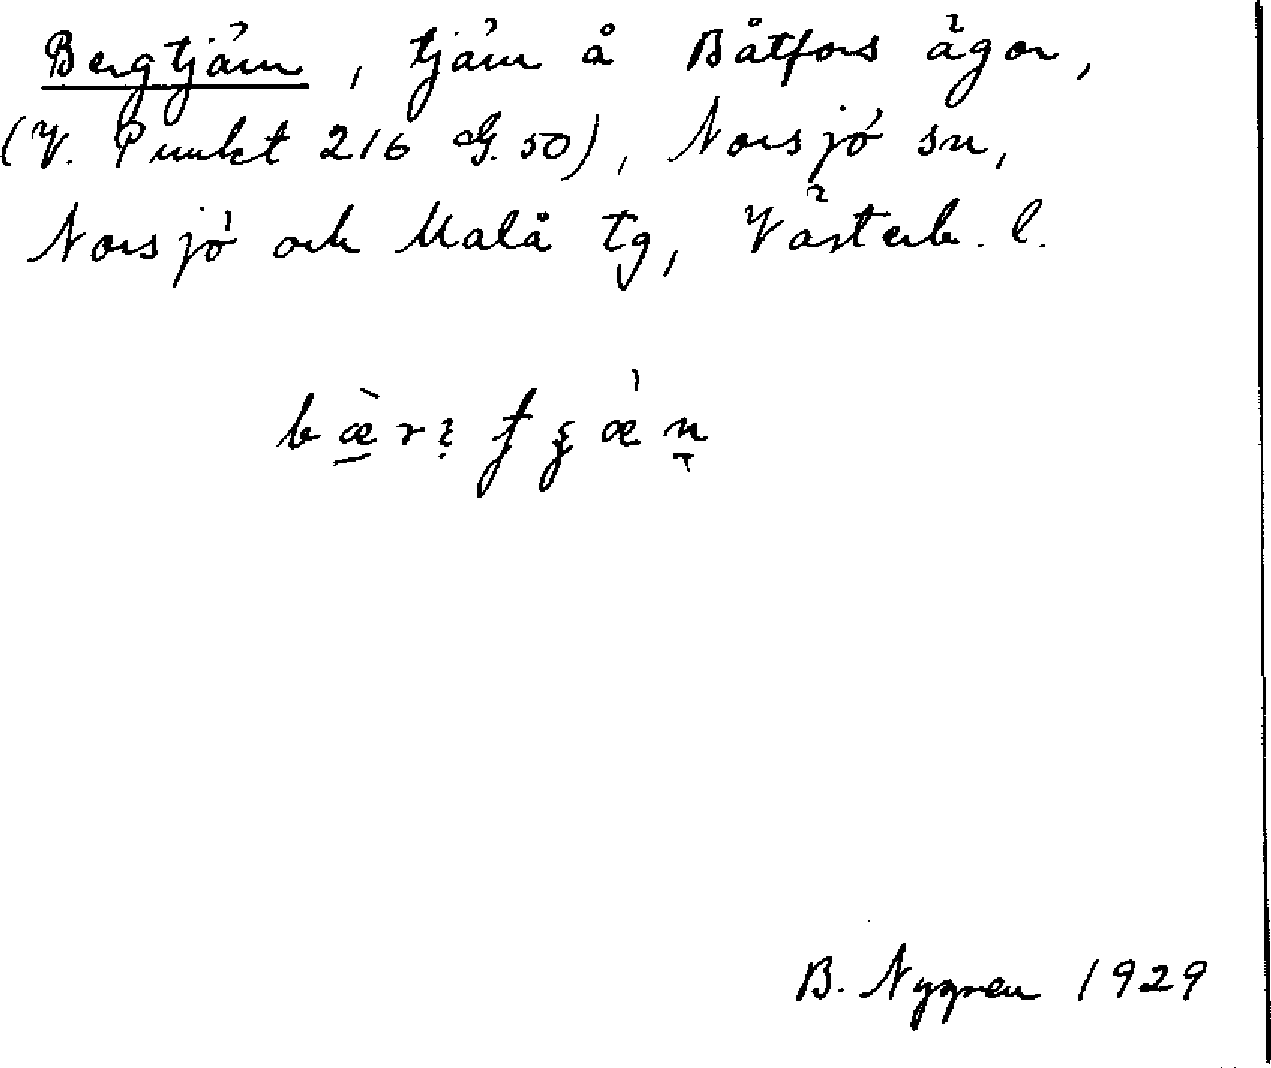 Bergtjärn, tjärn å Båtfors ägor,
(V. Punkt 216 G. 50), Norsjö sn,
Norsjö och Malå tg, Västerb. l.
B. Nygren 1929